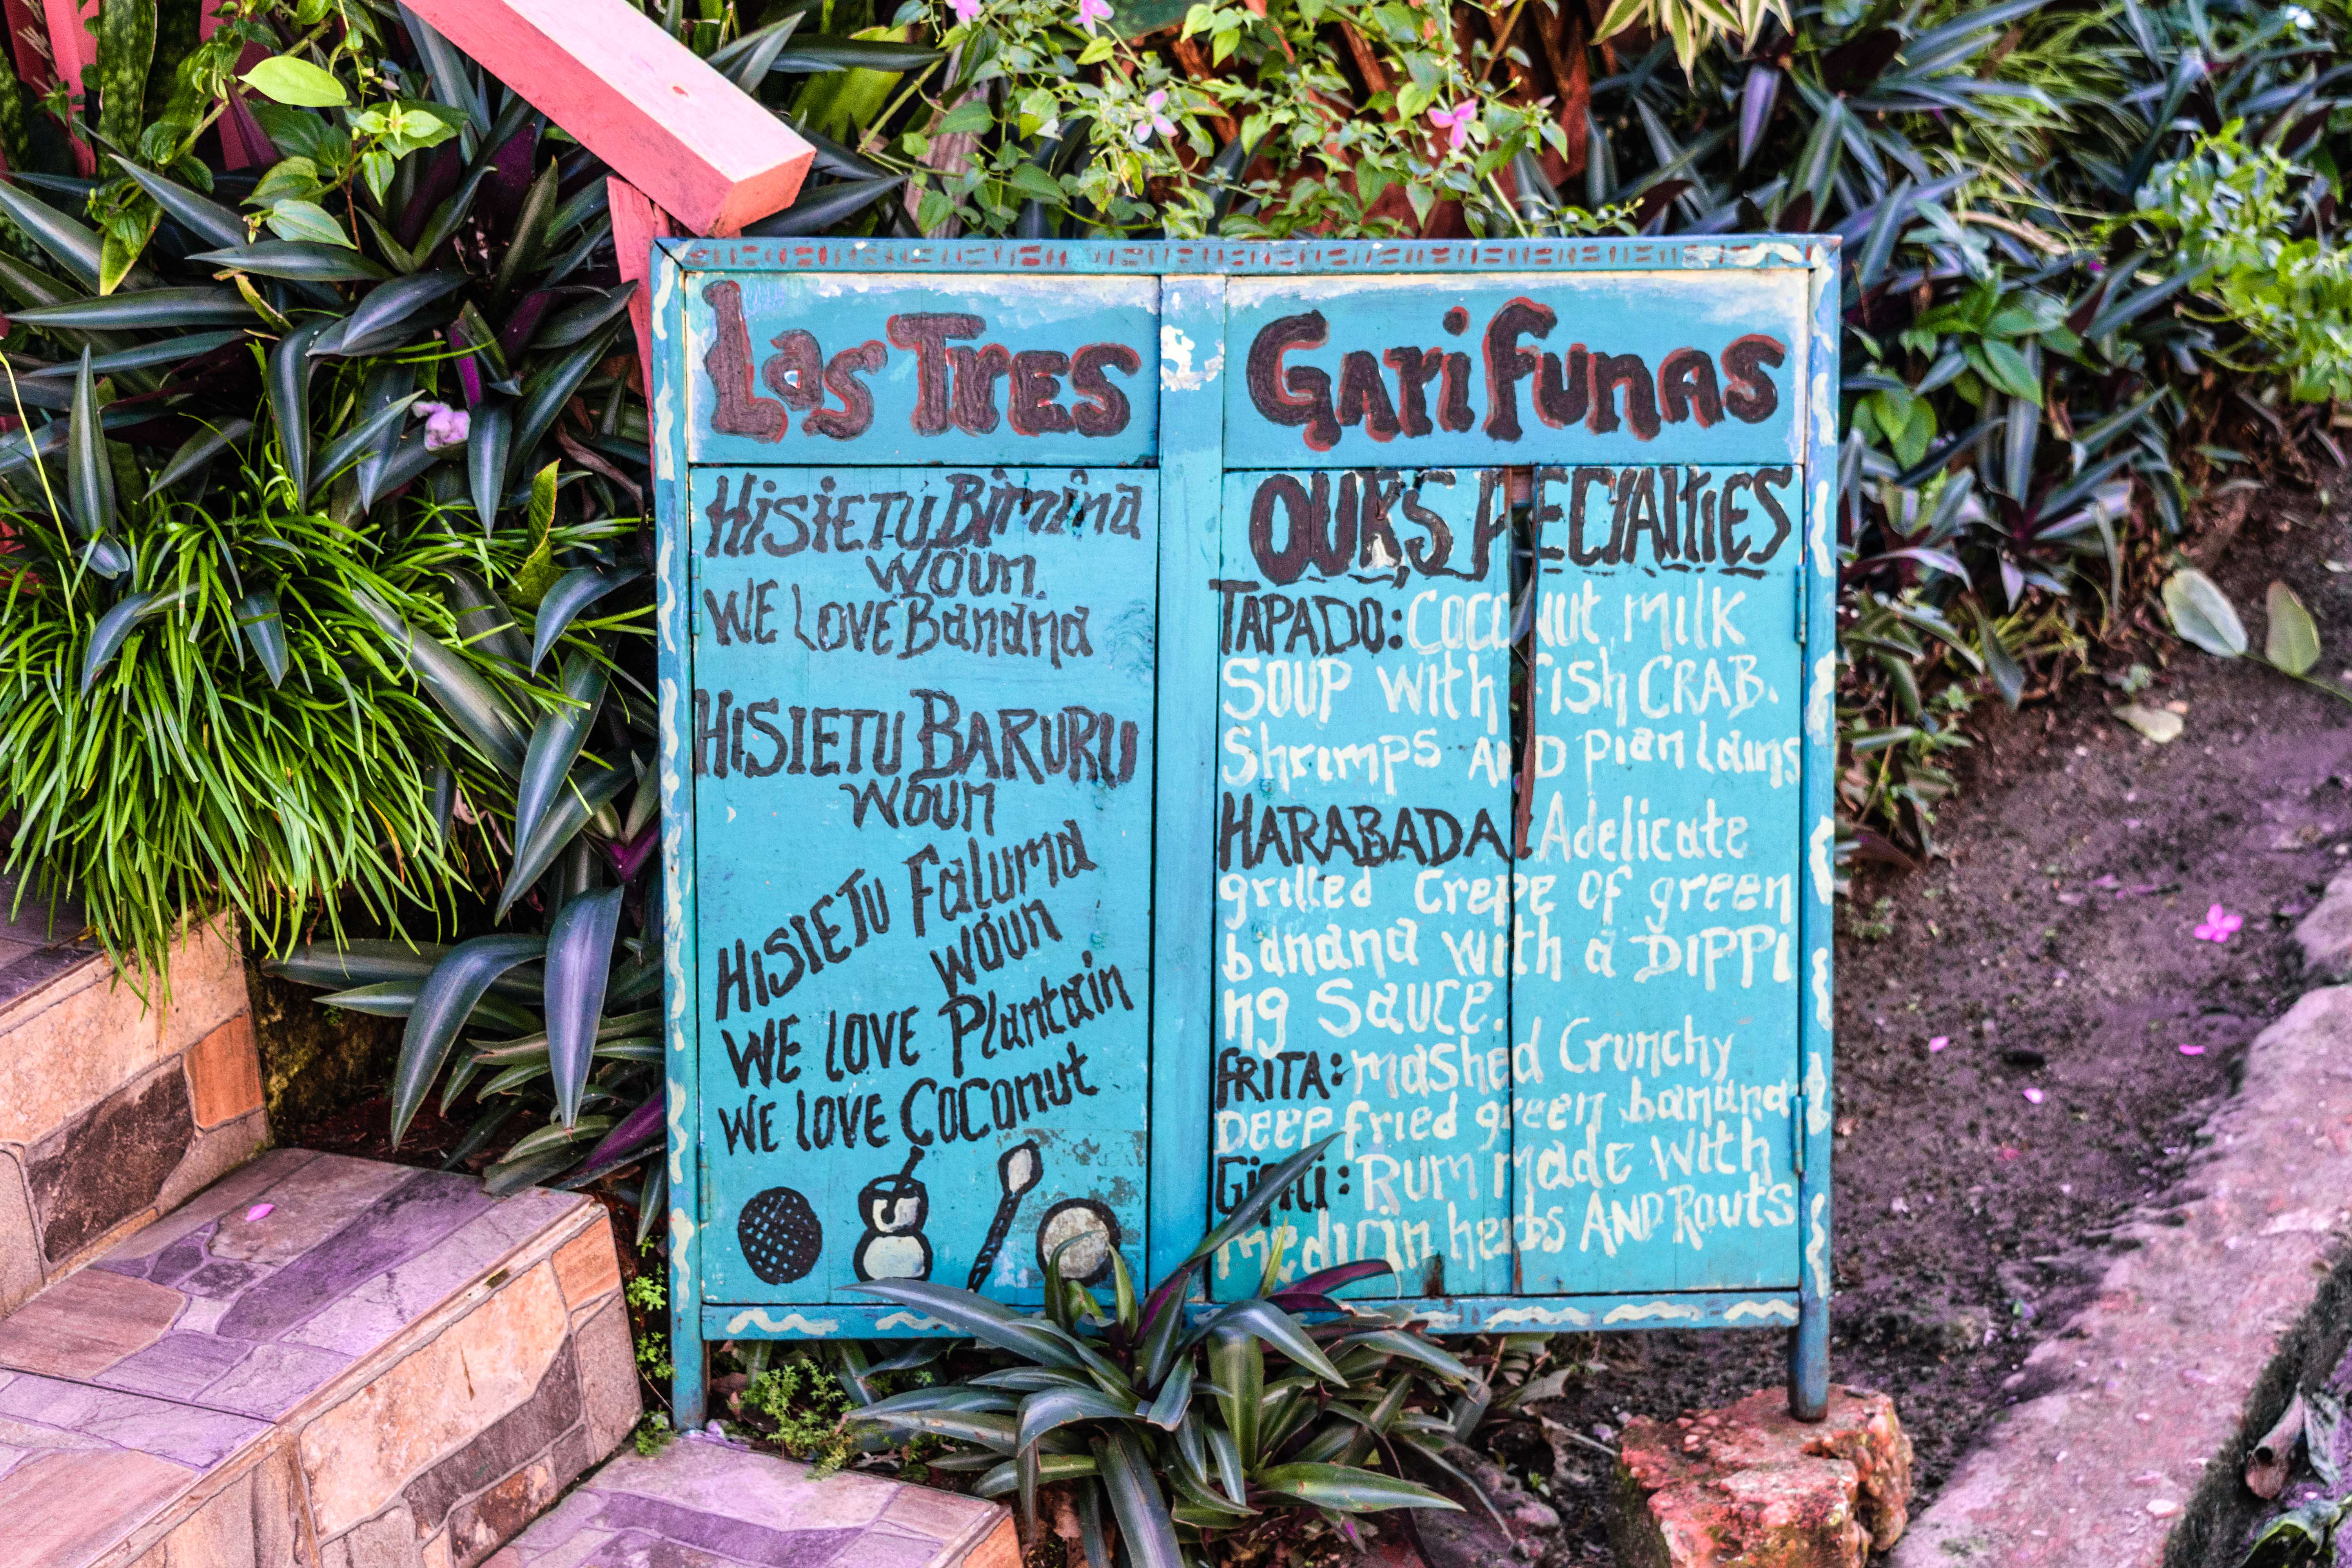 Las Tres Garifunas
HISIETU Bimina
WOUN.
WE LOVE Banana
HISIETU BARURU
WOUN
HISIETU Faluma
WOUN
WE LOVE Plantain
WE LOVE COCOnut
OUR SPECIALtIES
TAPADO: COCOnut MILK
SOUP WITH FISH CRAB.
Shrimps AND Plantains
HARABADA: A delicate
grilled Crepe OF green
banana with a DIPPI
ng Sauce.
FRITA: mashed Crunchy
DEEP fried green banana
Gifiti: Rum made with
medicin herbs AND Routs